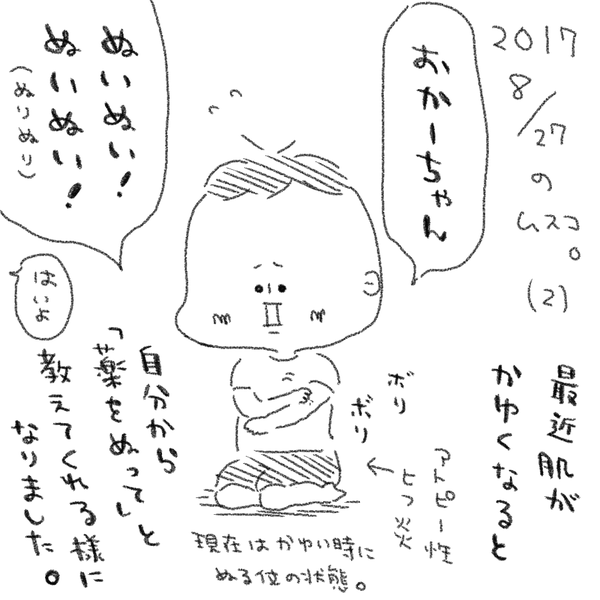 2017
8/27
の
ムスコ。
(2)
最近肌が
かゆくなると
おかーちゃん
ボリ
ボリ
アトピー性
ヒフ炎
現在はかゆい時に
ぬる位の状態。
ぬいぬい!
ぬいぬい!
(ぬりぬり)
はいよ
自分から
「薬をぬって」と
教えてくれる様に
なりました。